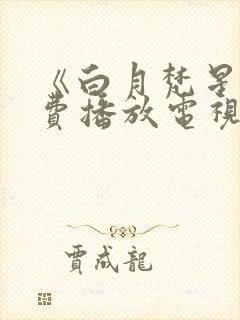 《白月梵星
費播放電視
賈成龍